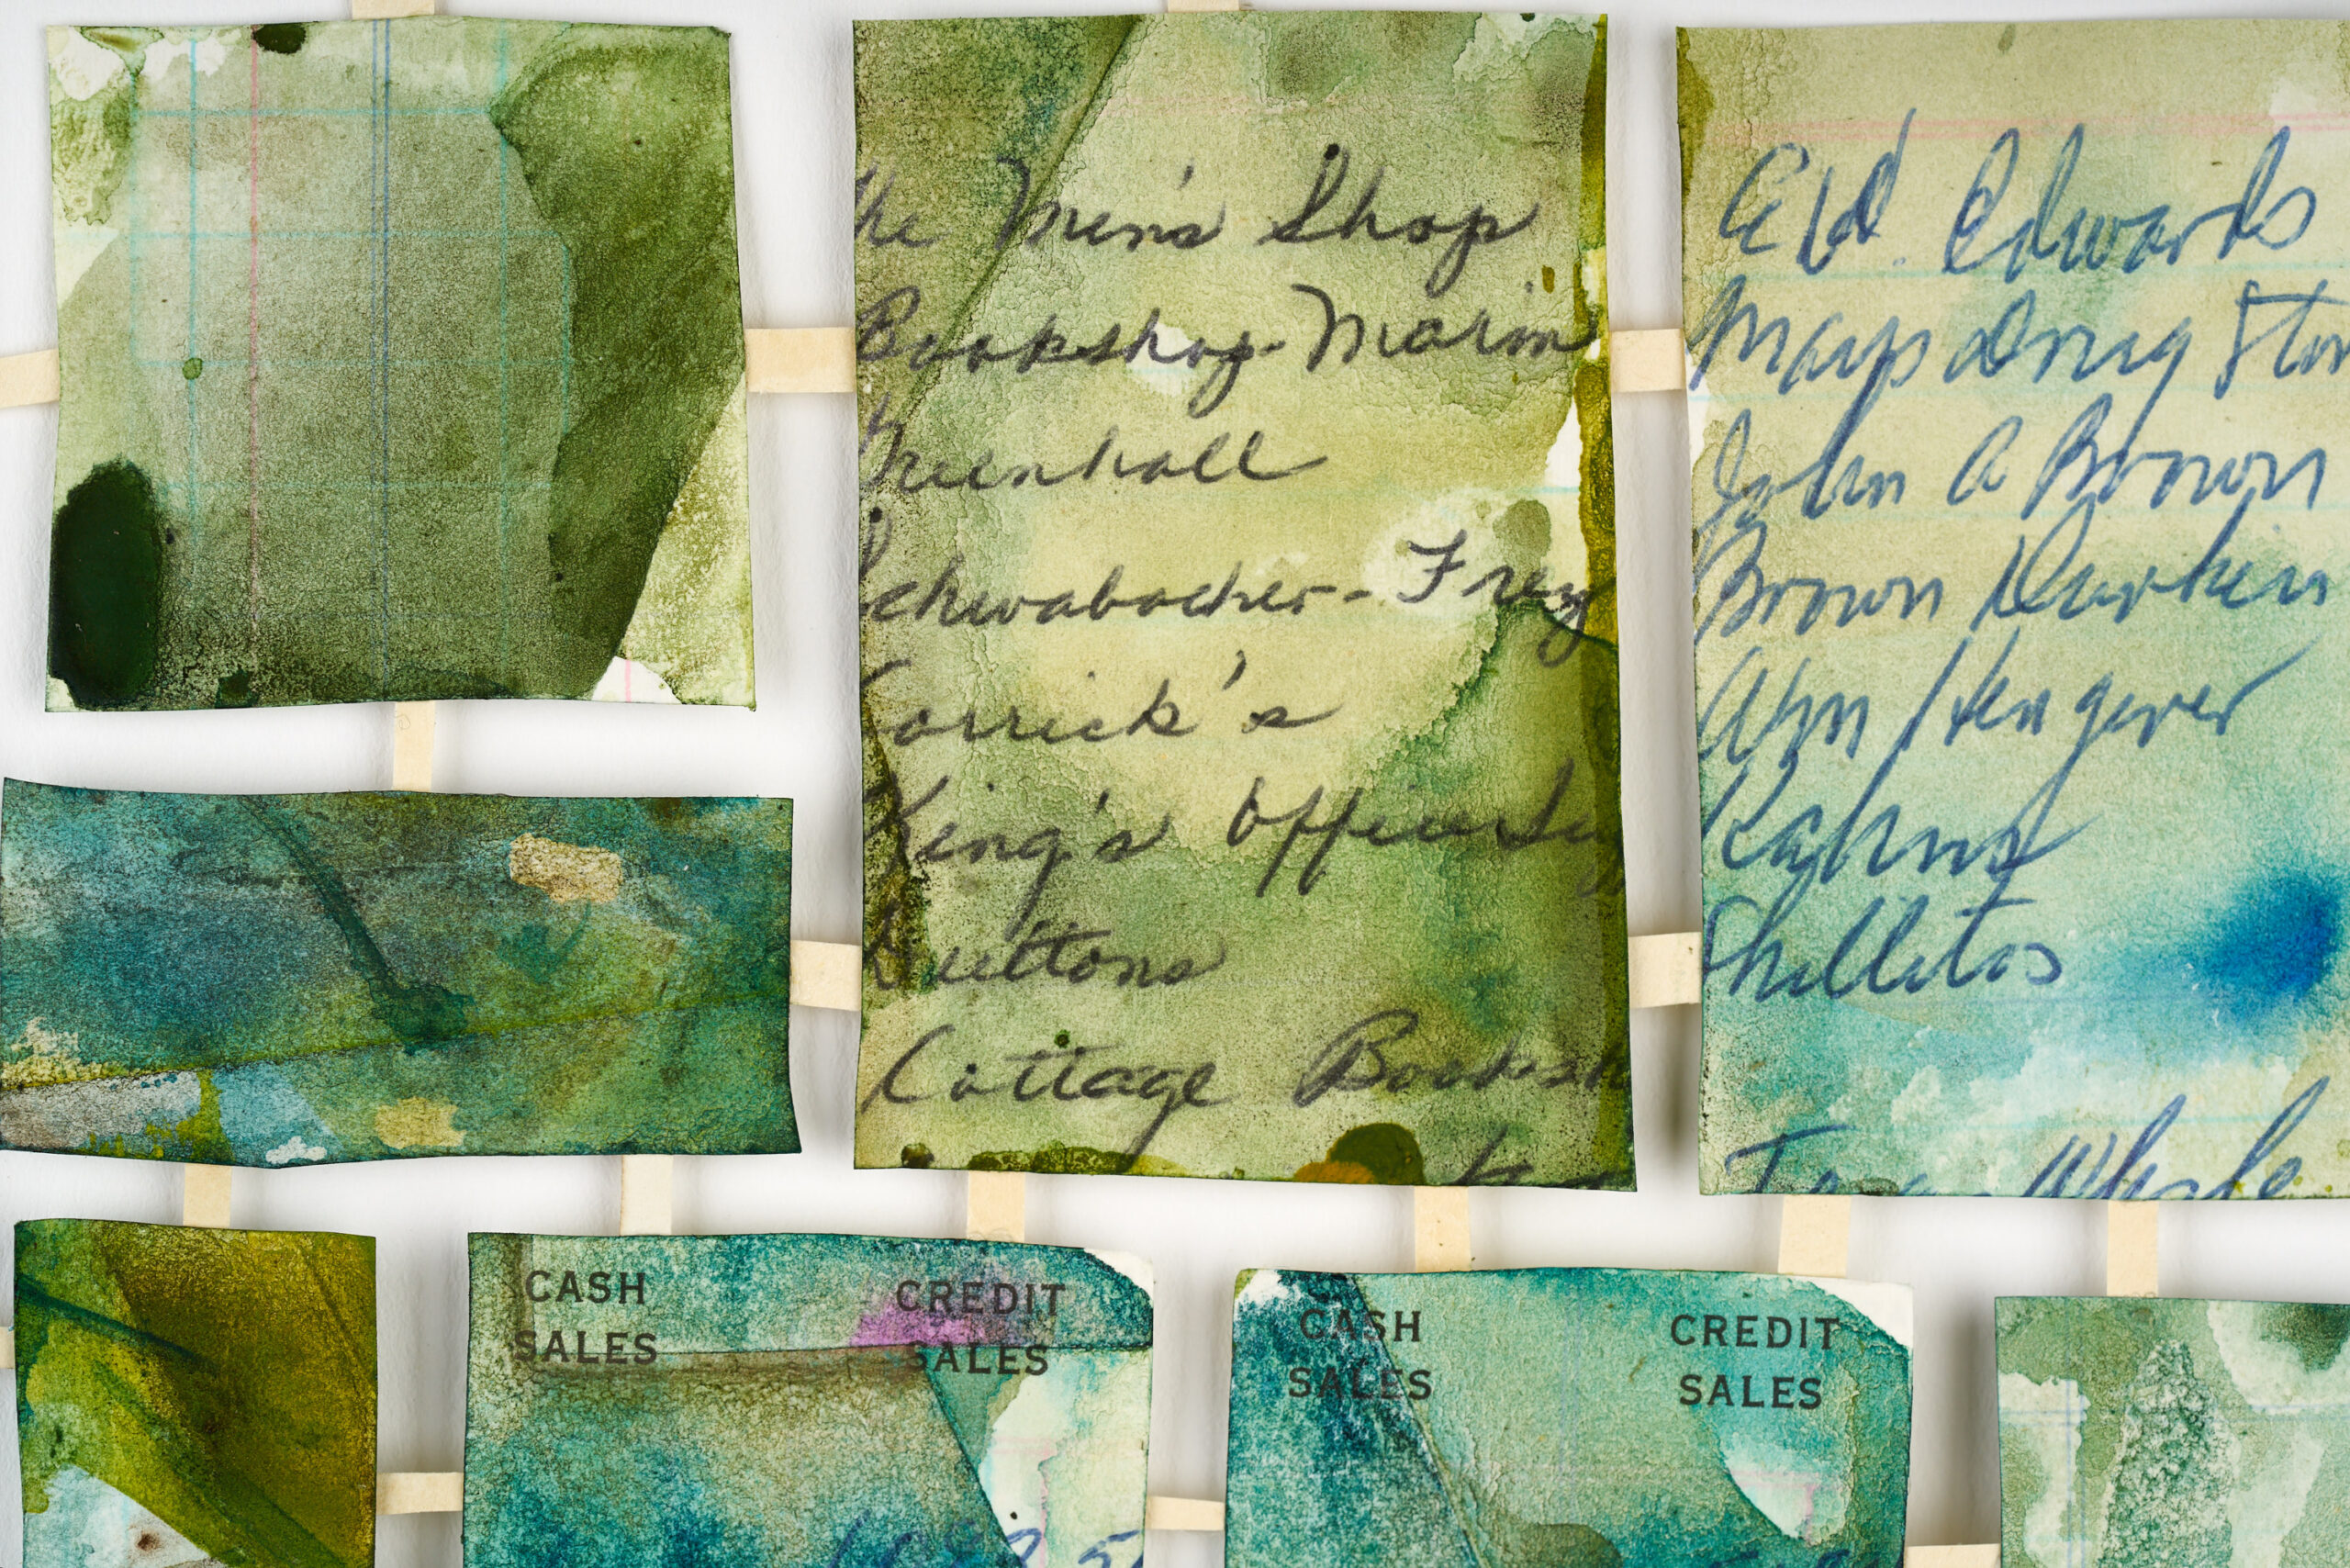 The Men's Shop
Bookshop - Marin
Greenhall
Schwabacher - Frey
Corrick's
King's Office Su
Duttons
Cottage Booksh
Edwards
Mays Drug Stor
John A Brown
Brown Durkin
Wm Hengerer
Kahns
Shillitos
White
CASH
SALES
CREDIT
SALES
CASH
SALES
CREDIT
SALES